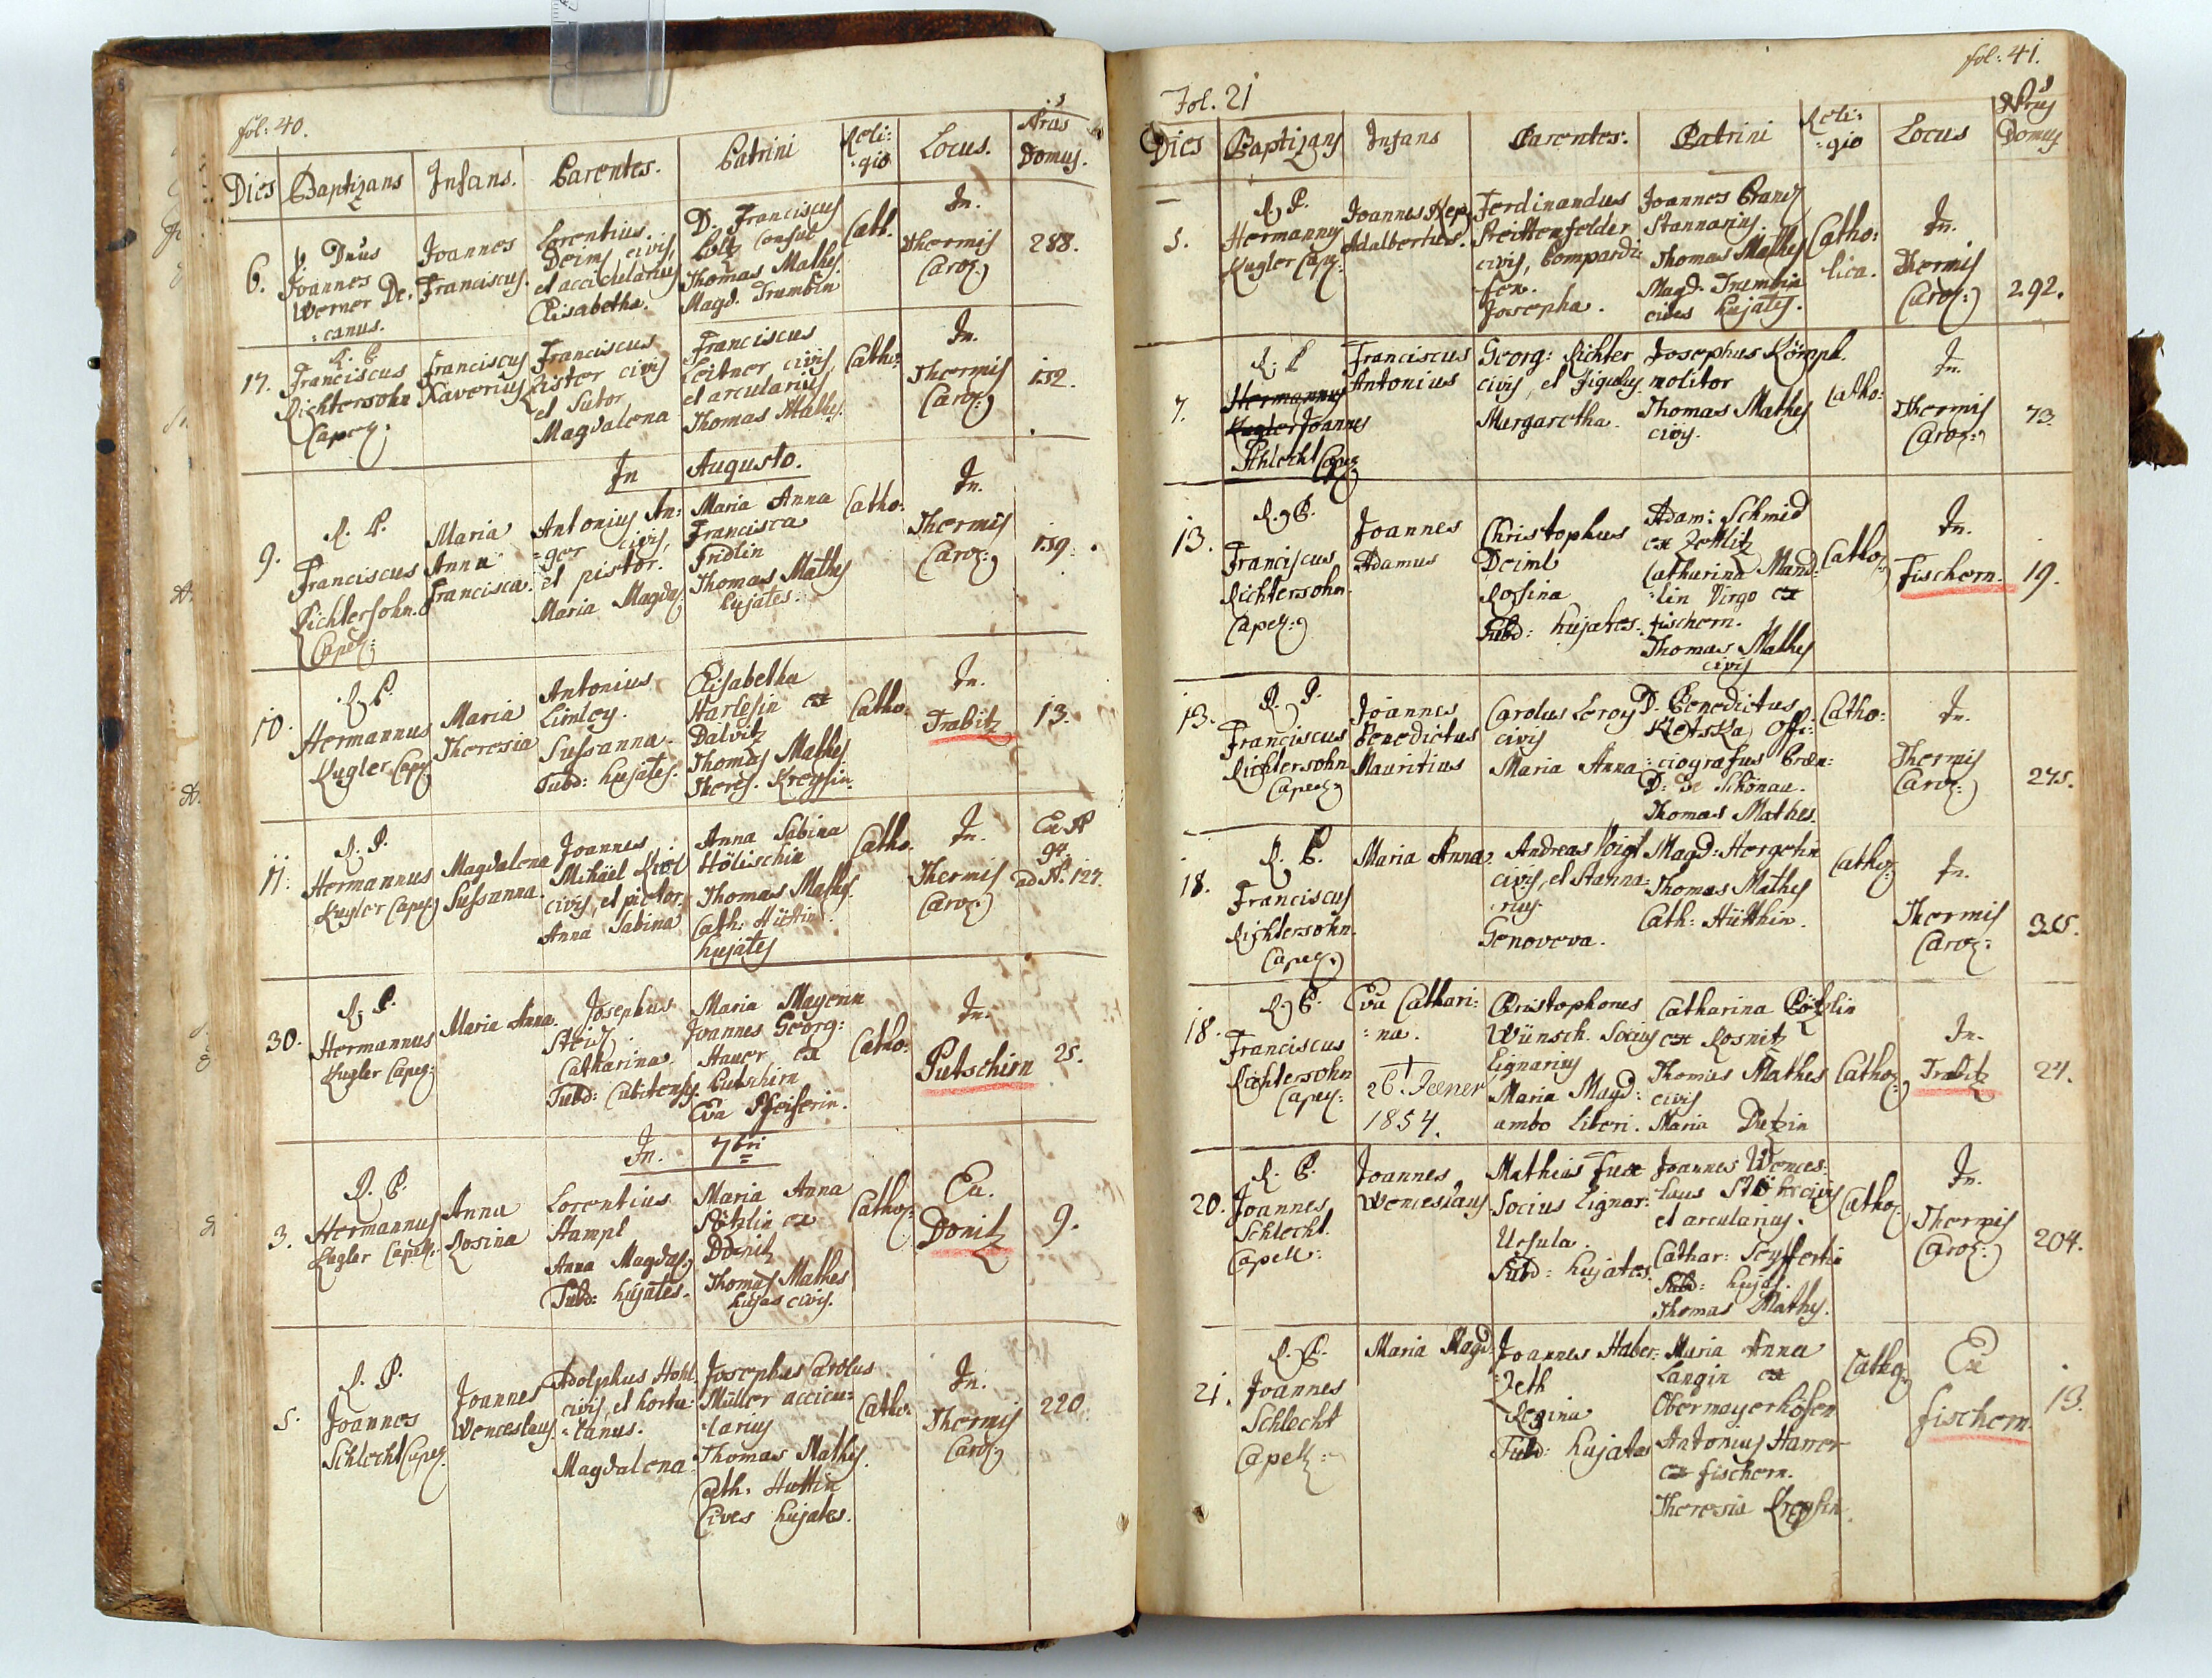 fol: 40.
Dies Baptizans Infans. Parentes. Patrini Reli: Locus. Nrus
:gio Domus.
6. Dnus
Joannes
Werner De:
:canus.
Joannes
Franciscus.
Lorentius
Deiml civis,
et accicularius
Elisabetha.
D. Franciscus
Loltz Consul
Thomas Mathes
Magd. Trumbin
Cath.
In.
Thermis
Caro:
288.
17. R. P.
Franciscus
Richtersohn
Capel:
Franciscus
Xaverius
Franciscus
Lister civis
et Sutor
Magdalena
Franciscus
Leitner civis
et arcularius
Thomas Mathes.
Catho:
In.
Thermis
Caro:
152.
In Augusto.
9. R. P.
Franciscus
Richtersohn.
Capel:
Maria
Anna
Francisca.
Antonius An:
:ger civis,
et pistor.
Maria Magda:
Maria Anna
Francisca
Fridlin
Thomas Mathes
hujates.
Catho:
In.
Thermis
Caro:
159.
10. R. P.
Hermannus
Kugler Cap:
Maria
Theresia
Antonius
Limley.
Sussanna.
Subd: hujates.
Elisabetha
Harlesin ex
Dalvitz
Thomas Mathes
Theres. Kreysin.
Catho.
In.
Trabitz
13.
11. R. P.
Hermannus
Kugler Capel:
Magdalena
Sussanna.
Joannes
Mihael
civis, et pictor.
Anna Sabina
Anna Sabina
Hölischin
Thomas Mathes.
Cath: Hüttin
hujates
Catho.
In.
Thermis
Caro:
Ex N
94.
ad N. 127.
30. R. P.
Hermannus
Kugler Capel:
Maria Anna.
Josephus
Steidl.
Catharina.
Subd: Cubitenses.
Maria Mayerin
Joannes Georg:
Hauer ex
Putschirn
Eva Pfeiferin.
Catho:
In.
Putschirn
25.
In. 7bri
3. R. P.
Hermannus
Kugler Capell:
Anna
Rosina
Lorentius
Hampl
Anna Magda:
Subd: hujates.
Maria Anna
Pötzlin ex
Donitz
Thomas Mathes
hujas civis.
Catho:
Ex.
Donitz
9.
5. R. P.
Joannes
Schlecht Capel.
Joannes
Wenceslaus
Adolphus Hohl
civis, et hortu:
:lanus.
Magdalena.
Josephus Carolus
Müller accicu:
:larius
Thomas Mathes.
Cath: Huttin
Cives hujates.
Catho:
In.
Thermis
Caro:
220.
Fol. 21
fol: 41.
Dies Baptizans Infans Parentes. Patrini Reli: Locus Nrus
:gio Domus
5. R. P.
Hermannus
Kugler Cap:
Joannes Nep:
Adalbertus.
Ferdinandus
Breittenfelder
civis, Compardi:
fex.
Josepha.
Joannes Brandl
Stannarius.
Thomas Mathes
Magd. Trumbin
cives hujates.
Catho:
lica.
In.
Thermis
Caro:
292.
7. R. P
Hermannus
Kugler Joannes
Schlecht Capel
Franciscus
Antonius
Georg: Richter
civis, et figulus
Margaretha.
Josephus Römpl.
molitor
Thomas Mathes
civis.
Catho:
In.
Thermis
Caro:
73.
13. R. P.
Franciscus
Richtersohn
Capel:
Joannes
Adamus
Christophus
Deiml
Rosina
Subd: hujates.
Adam: Schmid
ex Zettlitz
Catharina Mand:
:lin Virgo ex
fischern.
Thomas Mathes
civis
Catho:
In.
Fischern.
19.
13. R. P.
Franciscus
Richtersohn
Capel:
Joannes
Benedictus
Mauritius
Carolus Leroy
civis
Maria Anna
D. Benedictus
Kletska Offi:
:ciografus Præn:
D: de Schönau.
Thomas Mathes.
Catho:
In.
Thermis
Caro:
275.
18. R. P.
Franciscus
Richtersohn.
Capel:
Maria Anna
Andreas Voigt
civis, et Stanna:
:rius
Genoveva.
Magd: Hergetin
Thomas Mathes
Cath: Hütthin.
Catho:
In.
Thermis
Caro:
315.
18. R. P.
Franciscus
Richtersohn
Capel:
Eva Cathari:
:na.
26. Feener
1854.
Christophorus
Wünsch. Socius
Lignarius
Maria Magd:
ambo Liberi.
Catharina Pötzlin
ex Rosnitz
Thomas Mathes
civis
Maria Dietzin
Catho:
In.
Trabitz
24.
20. R. P.
Joannes
Schlecht
Capell:
Joannes
Wenceslaus
Mathias Fux
Socius Lignar:
Ursula.
Subd: hujates.
Joannes Wences:
:laus Stöhr civis
et arcularius.
Cathar: Seyffertin
Subd: hujas.
Thomas Mathes.
Catho:
In.
Thermis
Caro:
204.
21. R. P.
Joannes
Schlecht
Capell:
Maria Magd:
Joannes Haber:
:zeth
Regina
Subd: hujates
Maria Anna
Langin ex
Obermayerhöfen
Antonius Harrer
ex fischern.
Theresia Kreysin.
Catho:
Ex
fischern.
13.